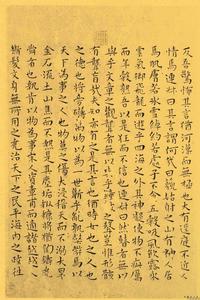 反吾驚怖其言猶河漢而無極也大有逕庭不近人
情焉連叔曰其言謂何哉曰藐姑射之山有神人居焉
肌膚若冰雪綽約若處子不食五穀吸風飲露乘
雲氣御飛龍而遊乎四海之外其神凝使物不疵癘
而年穀熟吾以是狂而不信也連叔曰然瞽者無以
與乎文章之觀聾者無以與乎鐘鼓之聲豈惟形骸
有聾盲哉夫知亦有之是其言也猶時女也之人也
之德也將旁礴萬物以為一世蘄乎亂孰弊弊焉以
天下為事之人也物莫之傷大浸稽天而不溺大旱
金石流土山焦而不熱是其塵垢粃糠將猶陶鑄堯
舜者也孰肯以物為事宋人資章甫而適諸越越人
斷髮文身無所用之堯治天下之民平海內之政往